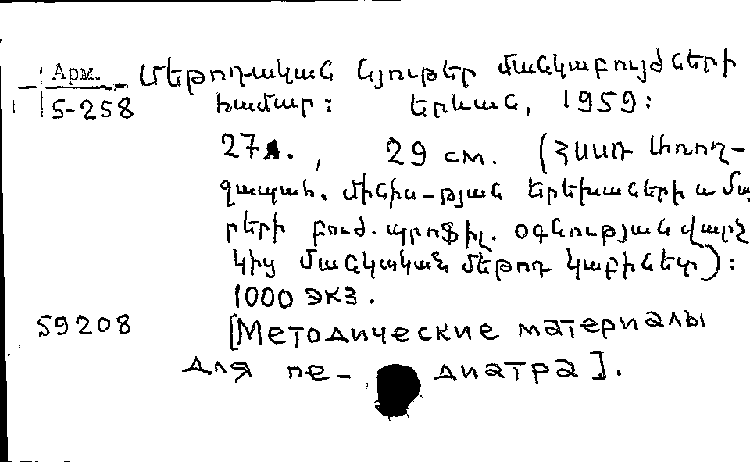 Арм. Մեթոդական նյութեր մանկաբույժների
5-258 համար: Երևան, 1959:
27л., 29 см. (ՀՍՍՌ Առող-
ջապահ. մինիս-թյան երեխաների և մա
րերի բուժ. պրոֆիլ. օգնության վարչ
կից մանկական մեթոդ կաբինետ):
1000 экз.
59208 [Методические материалы
для пе- диатра].